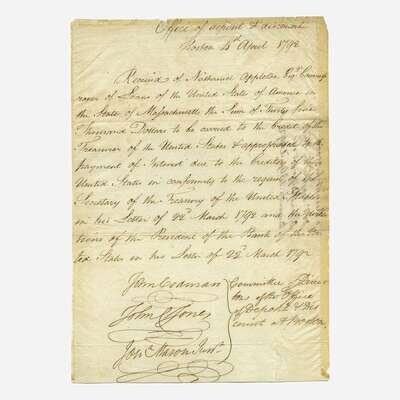 Office of deposit & discount
Boston 4th April 1792
Received of Nathaniel Appleton Esqr. Commiss
ioner of Loans of the United States of America in
the State of Massachusetts the Sum of Twenty five
Thousand Dollars to be carried to the Credit of the
Treasurer of the United States & appropriated to the
payment of Interest due to the Creditors of the
United States in conformity to the request of the
Secretary of the Treasury of the United States
in his Letter of 22d March 1792 and the
tions of the President of the Bank of the Uni
ted States in his Letter of 22d March 1792
John Codman
John C Jones
Jon. Mason Junr.
Committee of Direc
tors of the Office
of Deposit & Dis
count at Boston